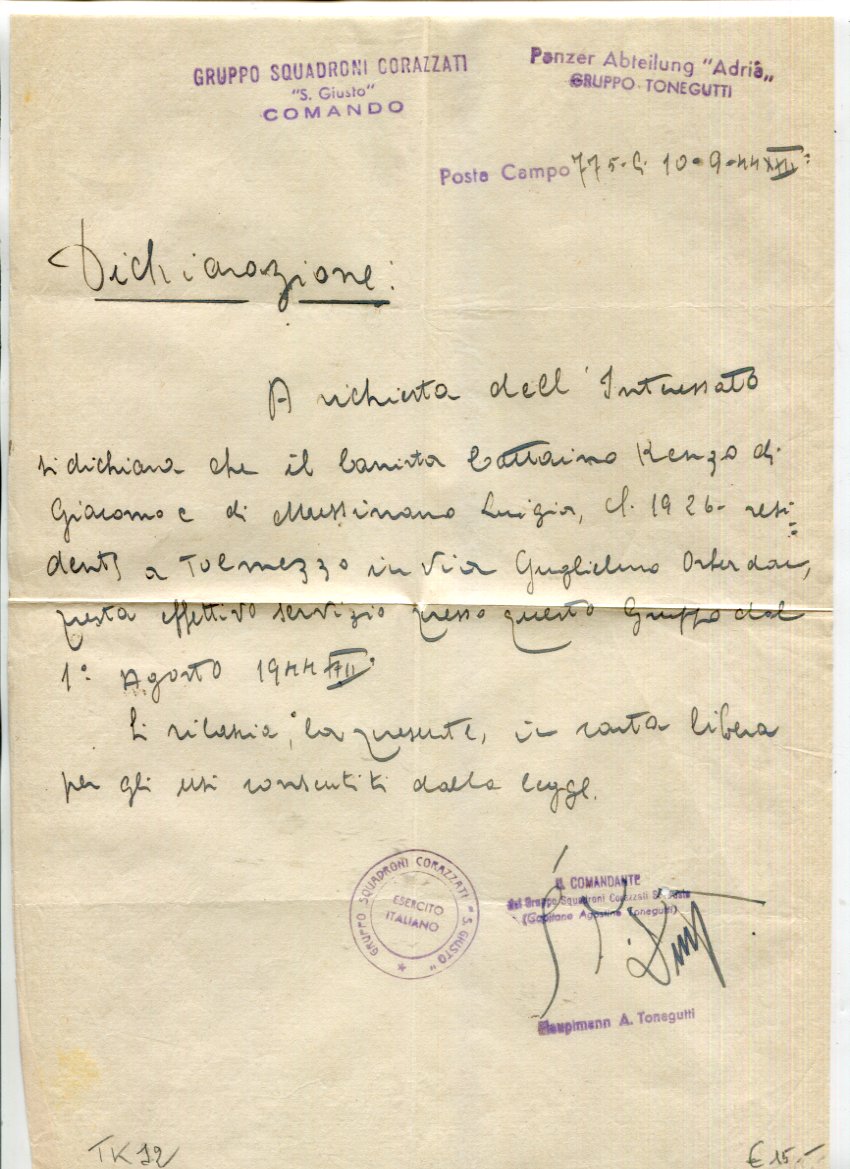 GRUPPO SQUADRONI CORAZZATI
"S. Giusto"
COMANDO
Panzer Abteilung "Adria„
GRUPPO TONEGUTTI
Posta Campo 775. G 10-9-44 XXII°
Dichiarazione:
A richiesta dell'Interessato
si dichiara che il Carrista Cattaino Renzo di
Giacomo e di Mussinano Luigia, cl. 1926- resi=
dente a Tolmezzo in via Guglielmo
presta effettivo servizio presso questo Gruppo dal
1° Agosto 1944 XXII°
Si rilascia, la presente, in carta libera
per gli usi consentiti dalla legge.
GRUPPO SQUADRONI CORAZZATI "S. GIUSTO"
ESERCITO
ITALIANO
IL COMANDANTE
del Gruppo Squadroni Corazzati S. Giusto
(Capitano Agostino Tonegutti)
Hauptmann A. Tonegutti
TK 92
€ 15.-